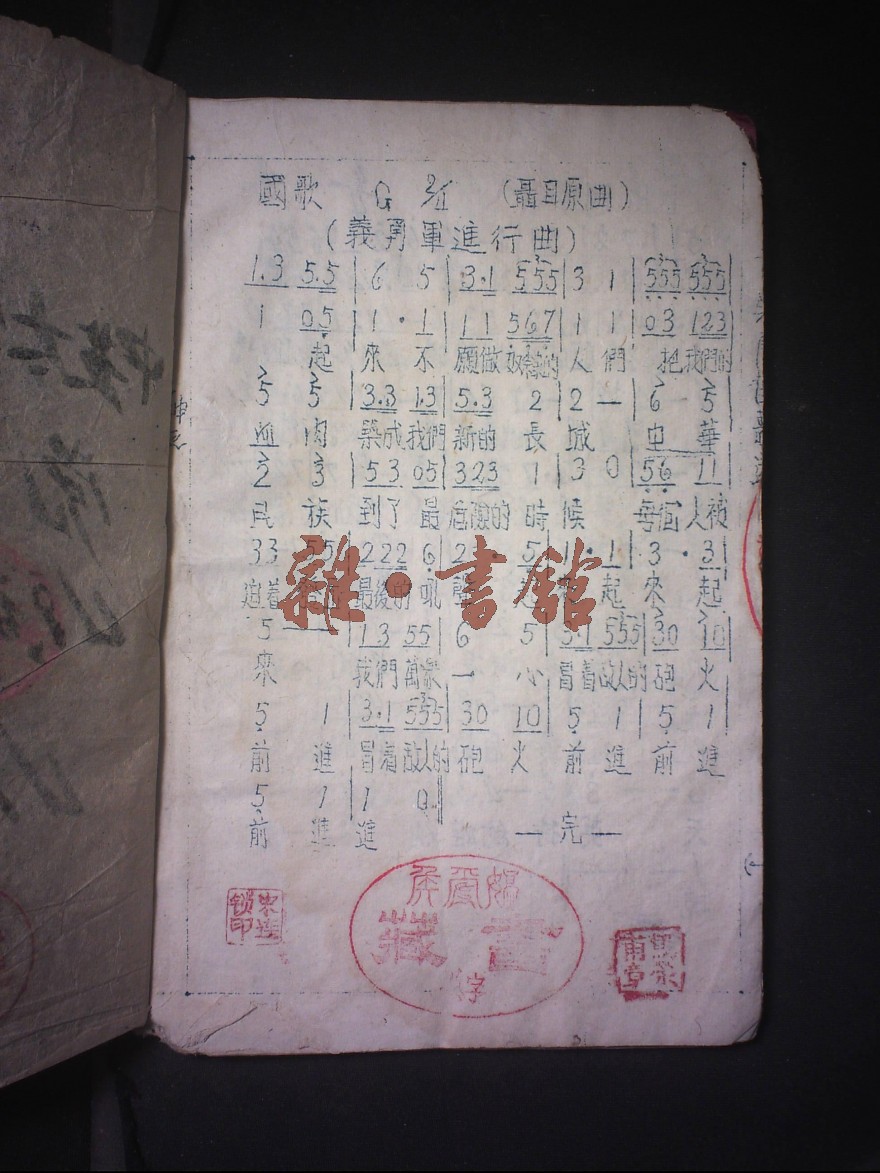 國歌 G 2/4 (聶耳原曲)
(義勇軍進行曲)
1.3 5.5 | 6 5 | 3.1 555 | 3 1 | 555 555 |
1 05 | 1 . 1 | 11 567 | 1 1 | 03 123 |
起 來 不 願做 奴隸的 人 們 把 我們的
5 5 | 3.3 1.3 | 5.3 2 | 2 — | 6 5 |
血 肉 築成 我們 新的 長 城 中 華
2 3 | 53 05 | 323 1 | 3 0 | 56 11 |
民 族 到了 最 危險的 時 候 每個 人被
33 55 | 222 6 | 2 . 5 | 1 . 1 | 3 . 3 |
迫着 最後的 吼 聲 起 起 來 起
5 — | 1.3 55 | 6 5 | 3.1 555 | 30 10 |
來 我們 萬衆 一 心 冒着 敌人的 砲 火
5 1 | 3.1 555 | 30 10 | 5 1 | 5 1 |
前 進 冒着 敌人的 砲 火 前 進 前 進
5 1 | 1 0 ‖
前 進 進 — 完 —
雜·書館
藏書
字